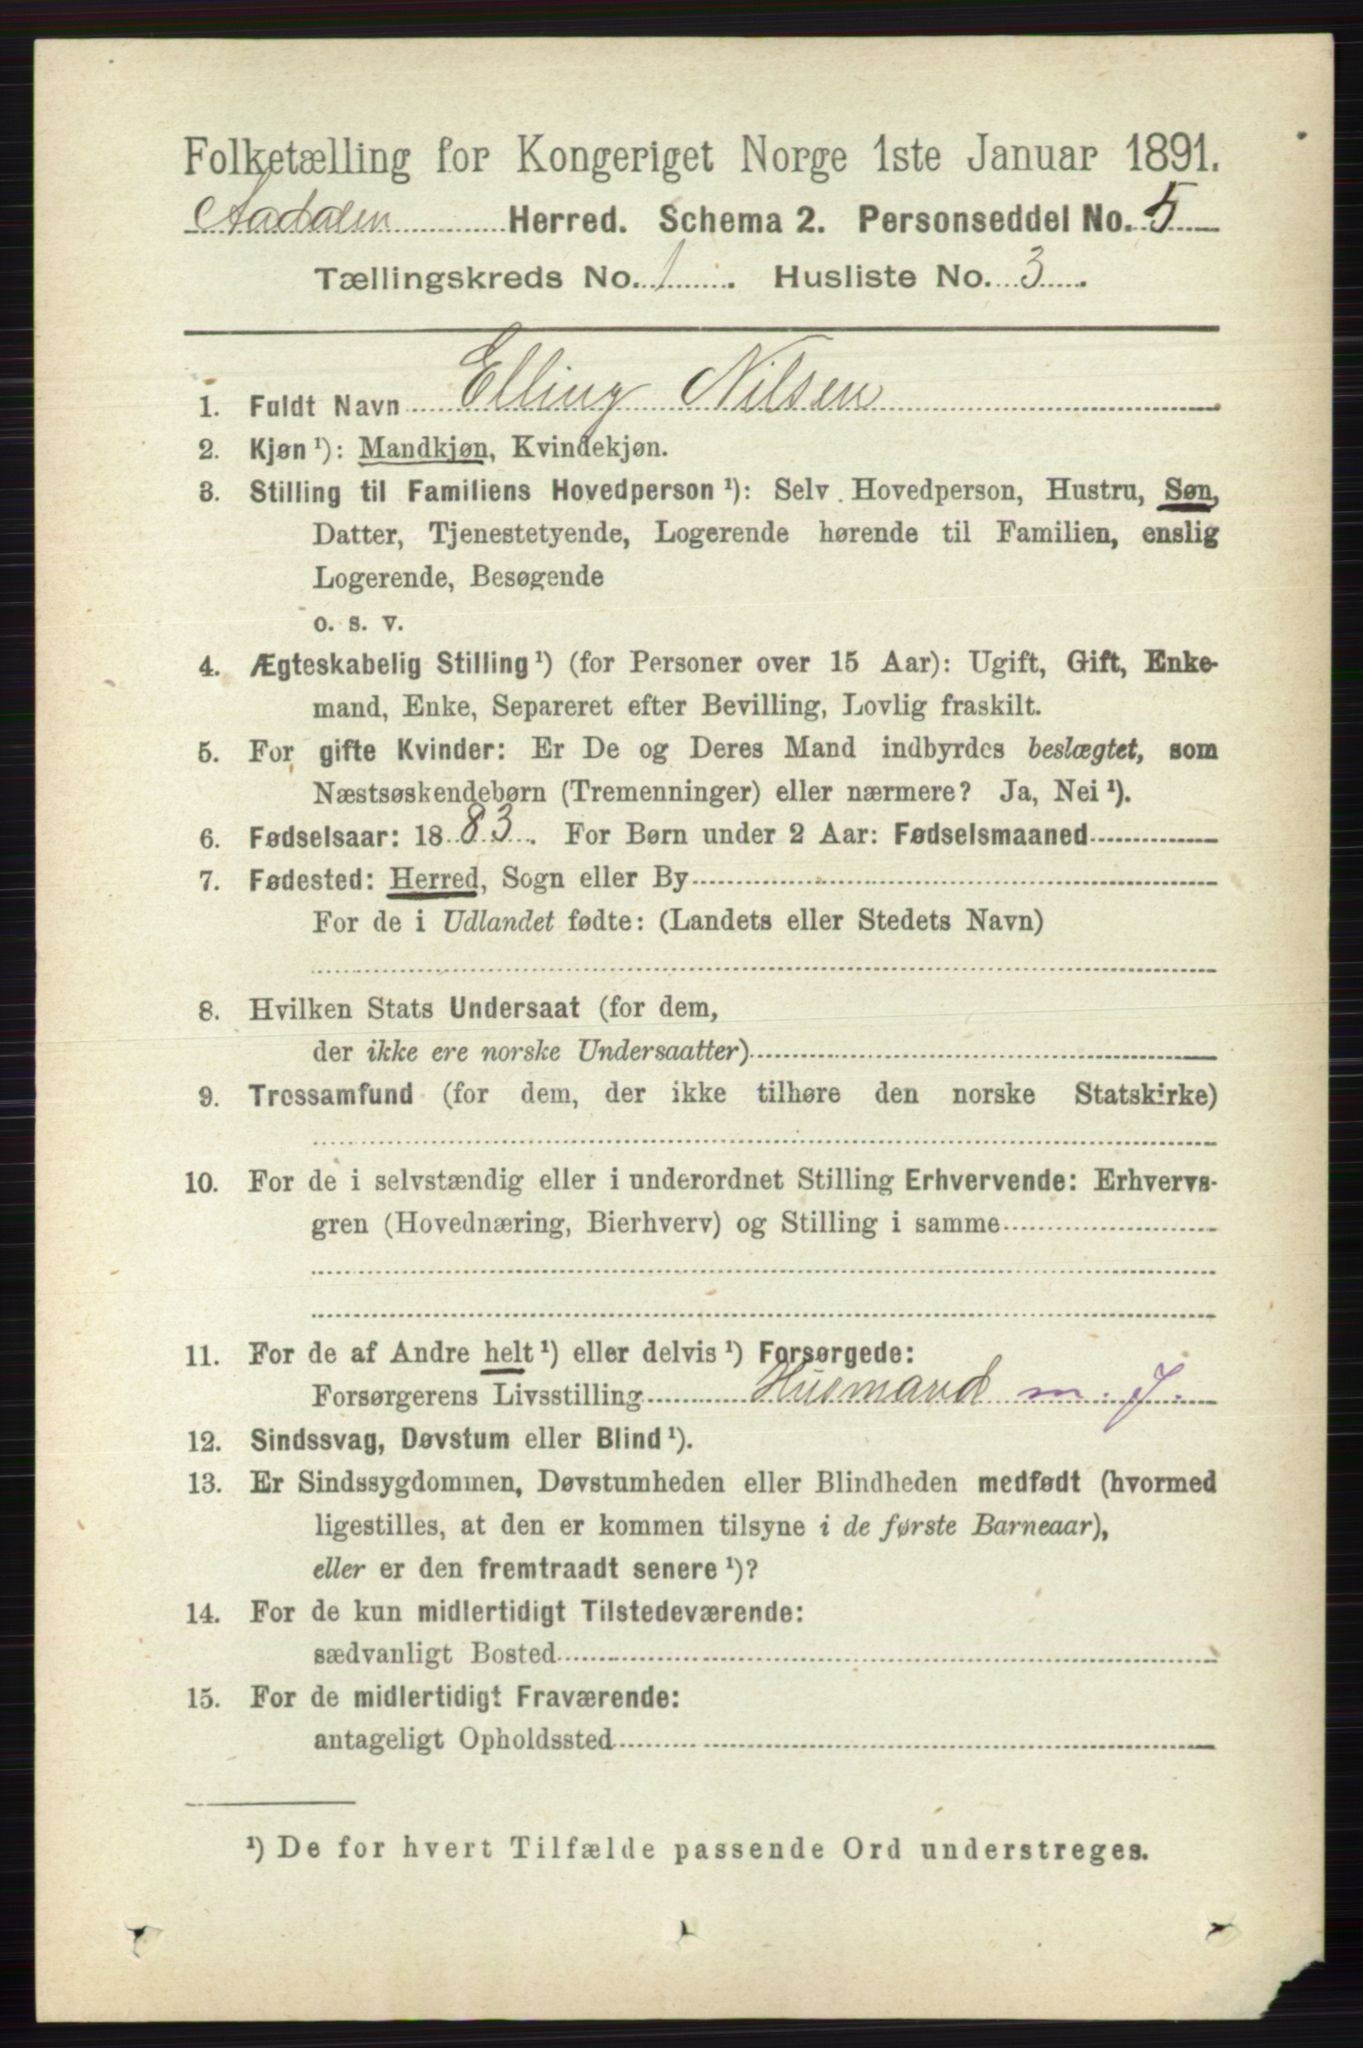 Folketælling for Kongeriget Norge 1ste Januar 1891.
Aadalen Herred. Schema 2. Personseddel No. 5
Tællingskreds No. 1. Husliste No. 3.
1. Fuldt Navn Elling Nilsen
2. Kjøn ¹): Mandkjøn, Kvindekjøn.
3. Stilling til Familiens Hovedperson ¹): Selv Hovedperson, Hustru, Søn,
Datter, Tjenestetyende, Logerende hørende til Familien, enslig
Logerende, Besøgende
o. s. v.
4. Ægteskabelig Stilling ¹) (for Personer over 15 Aar): Ugift, Gift, Enke-
mand, Enke, Separeret efter Bevilling, Lovlig fraskilt.
5. For gifte Kvinder: Er De og Deres Mand indbyrdes beslægtet, som
Næstsøskendebørn (Tremenninger) eller nærmere? Ja, Nei ¹).
6. Fødselsaar: 1883. For Børn under 2 Aar: Fødselsmaaned
7. Fødested: Herred, Sogn eller By
For de i Udlandet fødte: (Landets eller Stedets Navn)
8. Hvilken Stats Undersaat (for dem,
der ikke ere norske Undersaatter)
9. Trossamfund (for dem, der ikke tilhøre den norske Statskirke)
10. For de i selvstændig eller i underordnet Stilling Erhvervende: Erhvervs-
gren (Hovednæring, Bierhverv) og Stilling i samme
11. For de af Andre helt ¹) eller delvis ¹) Forsørgede:
Forsørgerens Livsstilling Husmand m. J.
12. Sindssvag, Døvstum eller Blind ¹).
13. Er Sindssygdommen, Døvstumheden eller Blindheden medfødt (hvormed
ligestilles, at den er kommen tilsyne i de første Barneaar),
eller er den fremtraadt senere ¹)?
14. For de kun midlertidigt Tilstedeværende:
sædvanligt Bosted
15. For de midlertidigt Fraværende:
antageligt Opholdssted
¹) De for hvert Tilfælde passende Ord understreges.